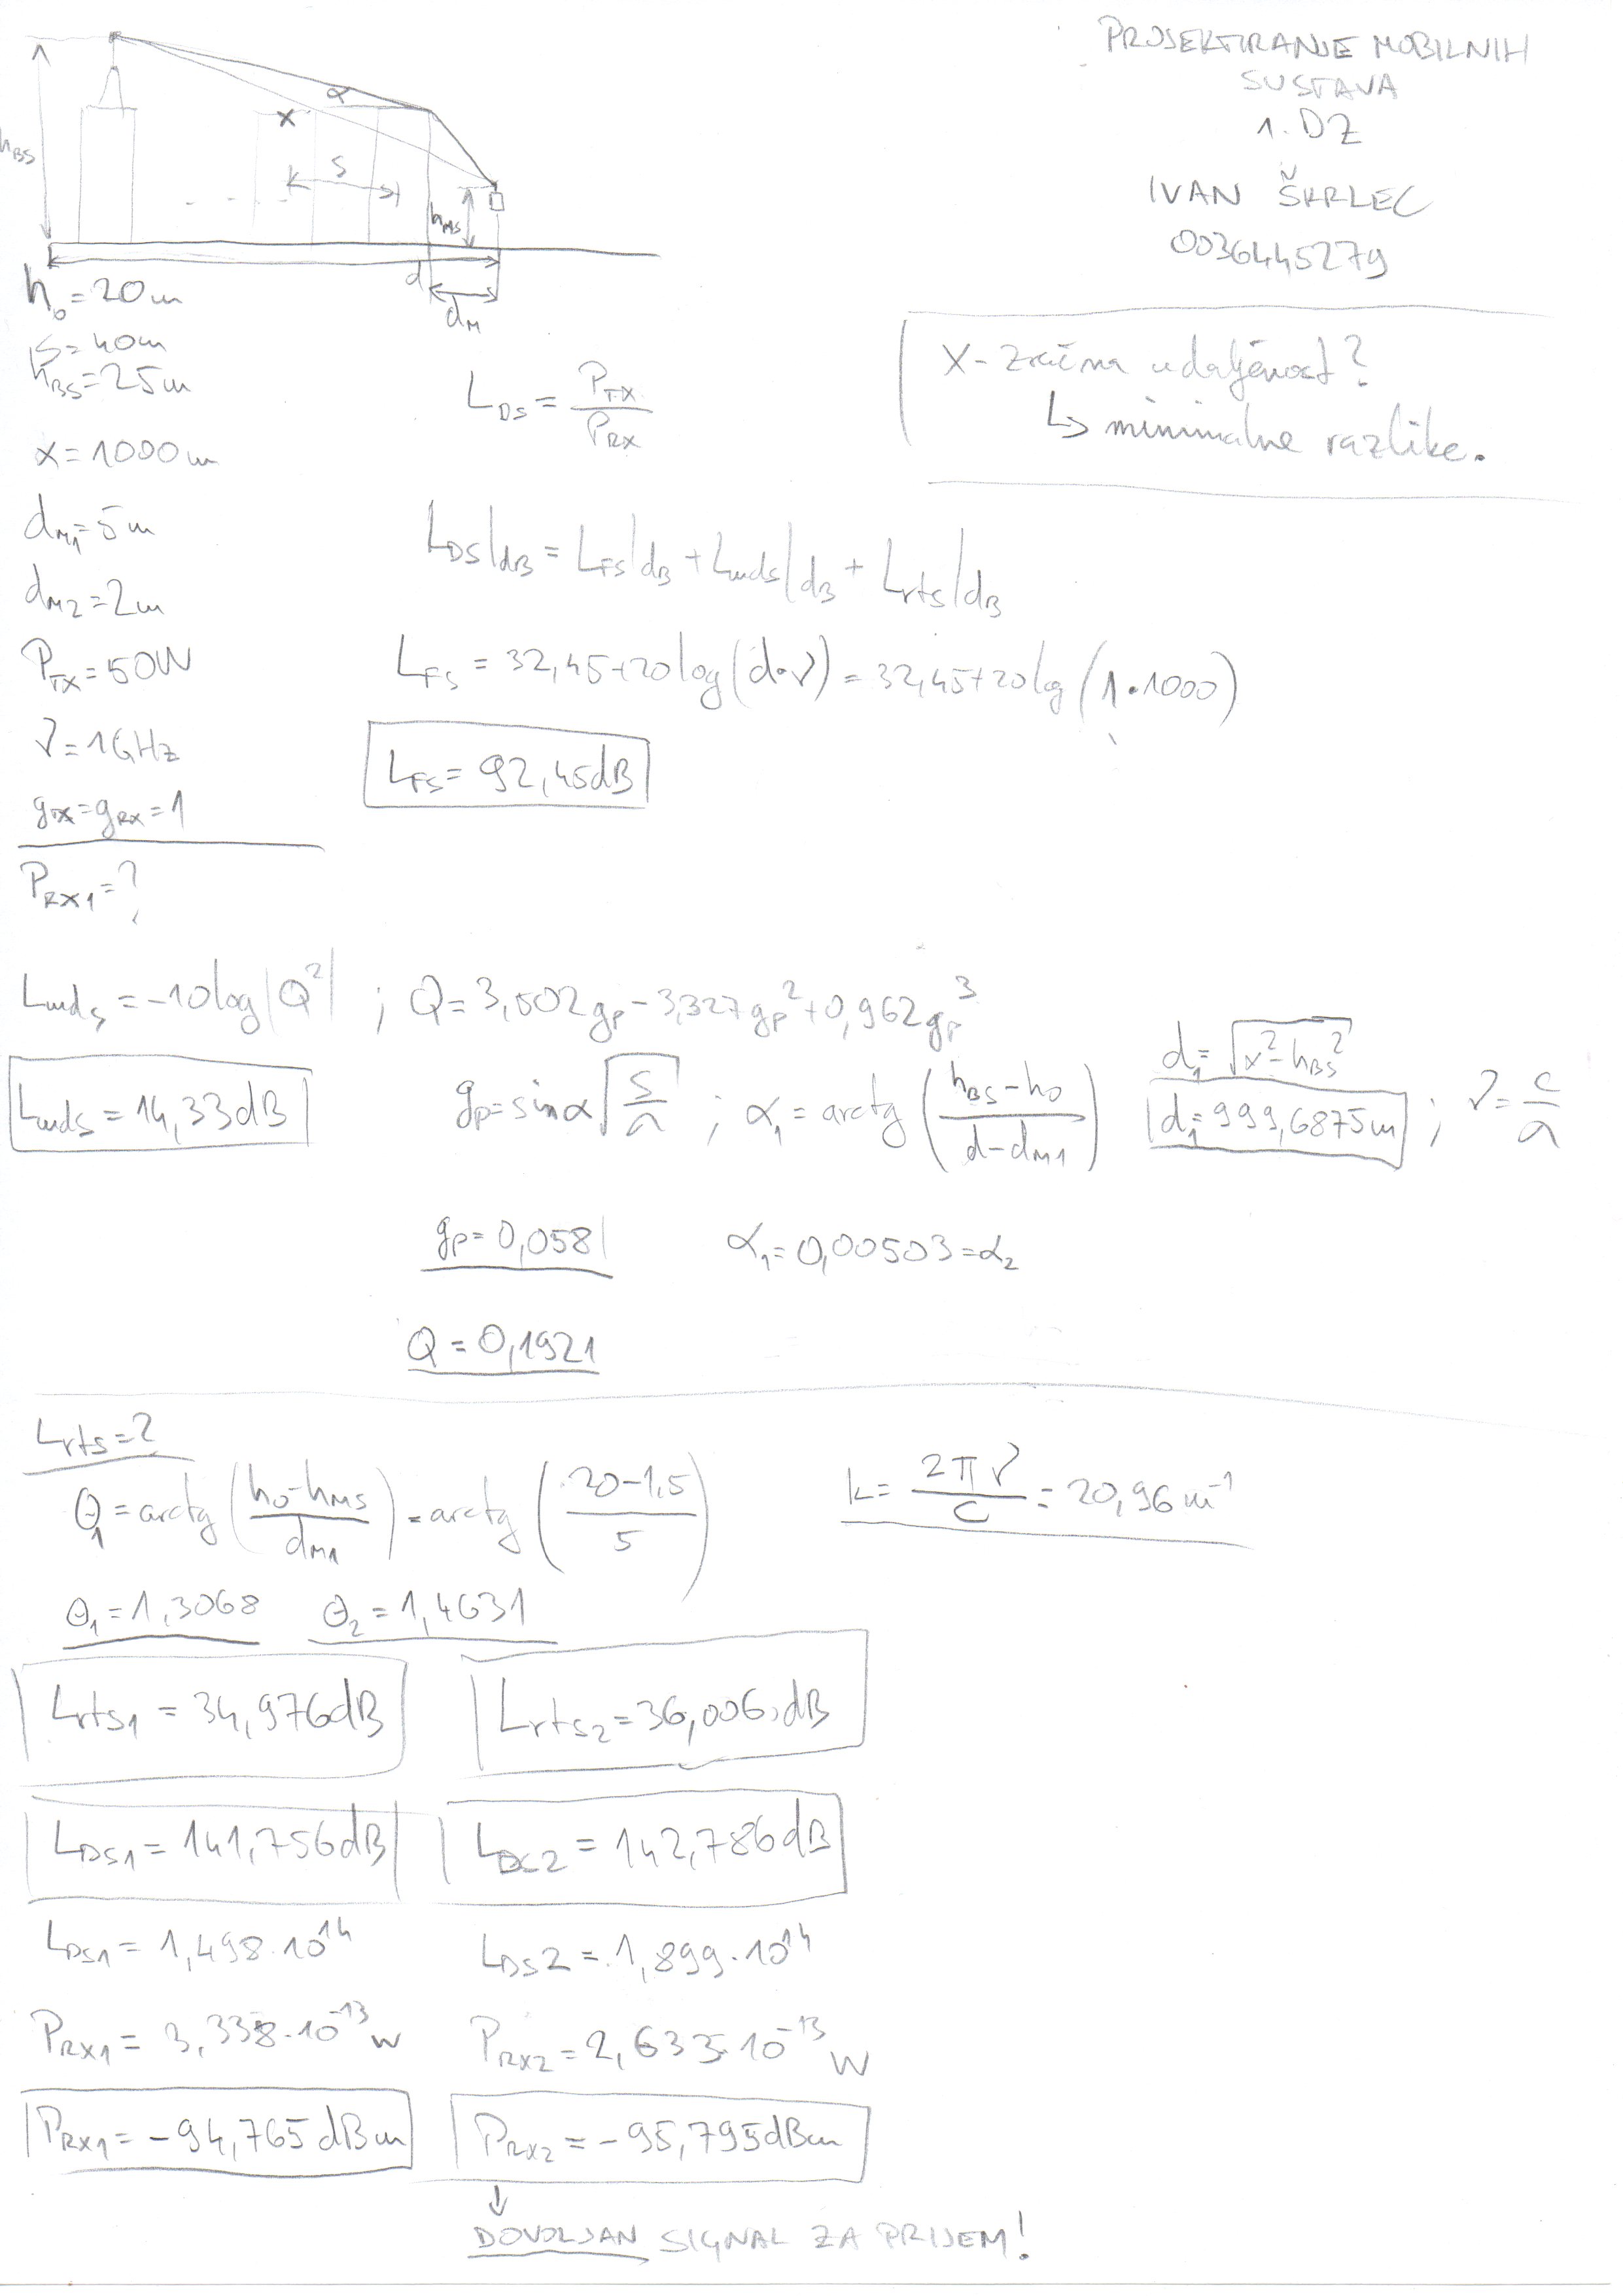 PROJEKTIRANJE MOBILNIH
SUSTAVA
1. DZ
IVAN ŠKRLEC
0036445279
h_BS
α
x
S
h_MS
d
d_M
h_0 = 20m
S = 40m
h_BS = 25m
x = 1000m
d_M1 = 5m
d_M2 = 2m
P_TX = 50W
ν = 1GHz
g_TX = g_RX = 1
P_RX1 = ?
X - zračna udaljenost?
↳ minimalne razlike.
L_DS = P_TX / P_RX
L_DS|dB = L_FS|dB + L_mds|dB + L_rts|dB
L_FS = 32,45+20log(d·ν) = 32,45+20log(1·1000)
L_FS = 92,45dB
L_mds = -10log|Q²| ; Q = 3,502g_p - 3,327g_p² + 0,962g_p³
L_mds = 14,33dB
g_p = sinα √(S/λ) ; α_1 = arctg((h_BS - h_0)/(d - d_M1))
d_1 = √(x² - h_BS²)
d_1 = 999,6875m ; ν = c/λ
g_p = 0,0581
α_1 = 0,00503 = α_2
Q = 0,1921
L_rts = ?
θ_1 = arctg((h_0 - h_MS)/d_M1) = arctg((20 - 1,5)/5)
k = 2πν/c = 20,96 m⁻¹
θ_1 = 1,3068 θ_2 = 1,4631
L_rts1 = 34,976dB L_rts2 = 36,006dB
L_DS1 = 141,756dB L_DS2 = 142,786dB
L_DS1 = 1,498·10¹⁴ L_DS2 = 1,899·10¹⁴
P_RX1 = 3,338·10⁻¹³ W P_RX2 = 2,633·10⁻¹³ W
P_RX1 = -94,765dBm P_RX2 = -95,795dBm
↓
DOVOLJAN SIGNAL ZA PRIJEM!